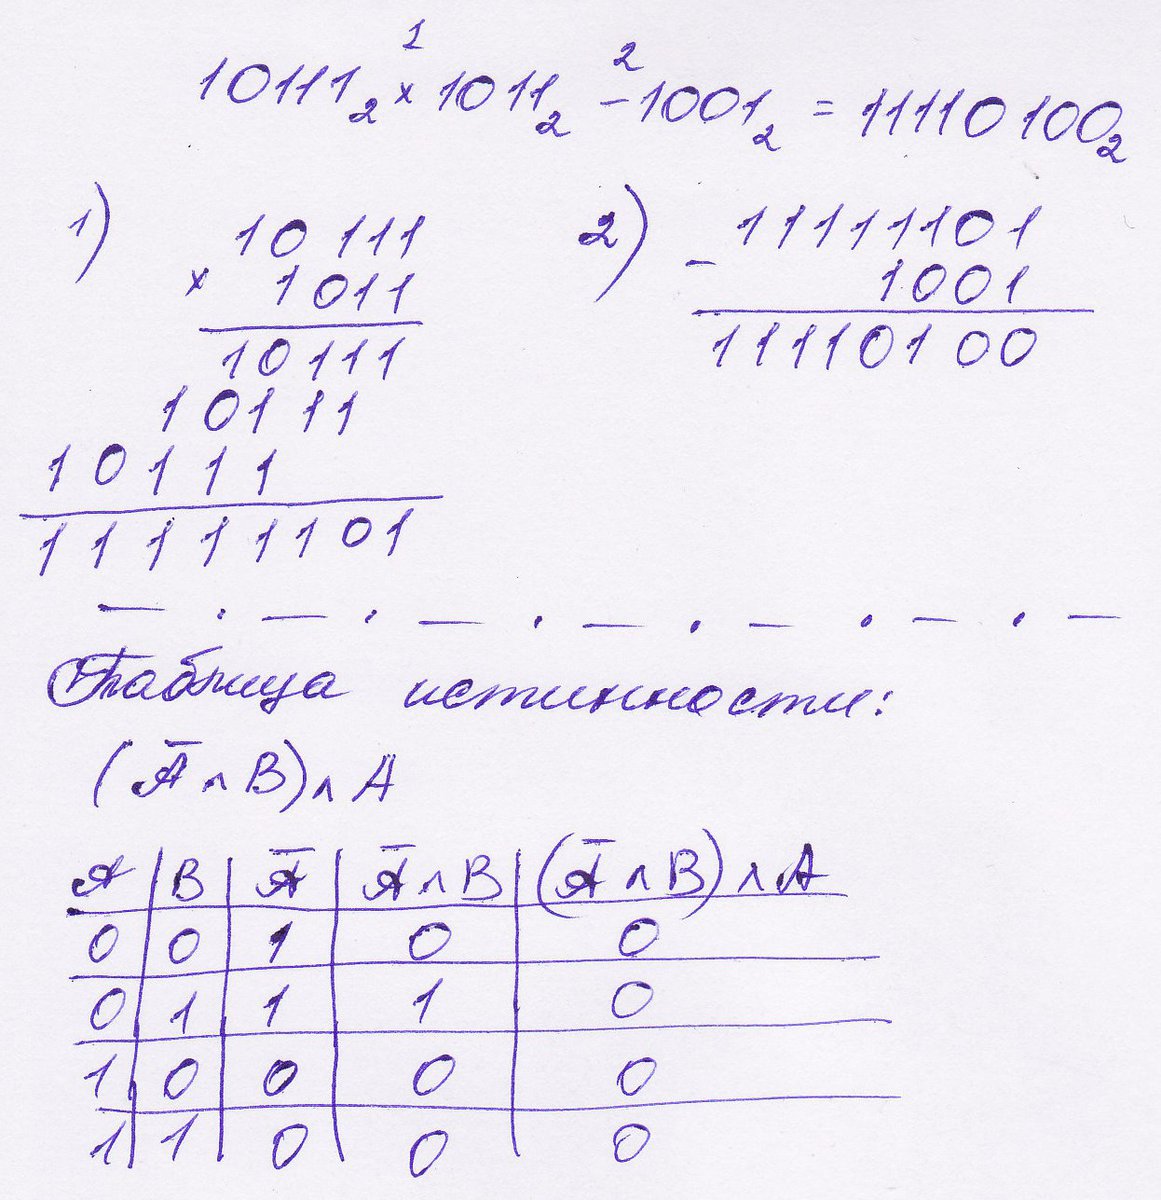 1 2
10111₂ × 1011₂ - 1001₂ = 11110100₂
1) 2)
10111 11111101
× 1011 - 1001
10111 11110100
10111
10111
11111101
Таблица истинности:
(Ā ∧ B) ∧ A
A B Ā Ā ∧ B (Ā ∧ B) ∧ A
0 0 1 0 0
0 1 1 1 0
1 0 0 0 0
1 1 0 0 0